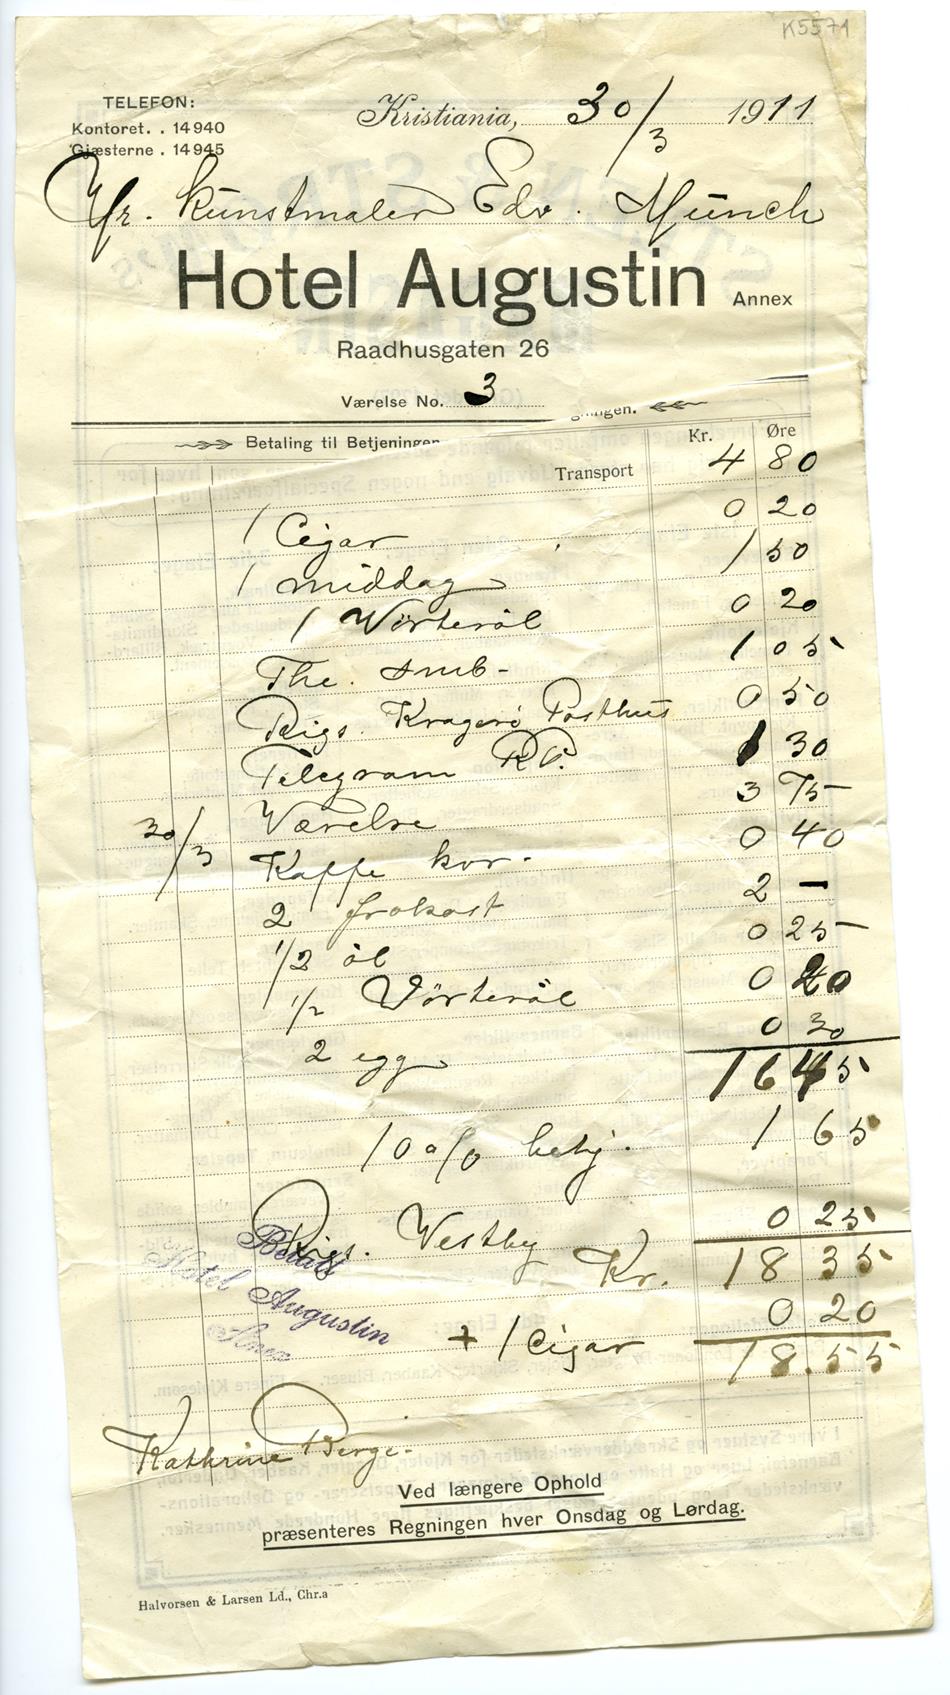 K5571
TELEFON:
Kontoret. . 14940
Gjæsterne . 14945
Kristiania, 30/3 1911
Hr. Kunstmaler Edv. Munch
Hotel Augustin Annex
Raadhusgaten 26
Værelse No. 3
Betaling til Betjeningen
Kr. Øre
Transport 4 80
1 Cigar 0 20
1 middag 1 50
1 Vörteröl 0 20
The. smb- 1 05
Rigs. Kragerö Posthus 0 50
Telegram R.P. 1 30
30/3 Værelse 3 75
Kaffe kvr. 0 40
2 frokost 2 —
1/2 öl 0 25
1/2 Vörteröl 0 20
2 egg 0 30
16 45
10 % betj. 1 65
Rigs. Westby 0 25
Kr. 18 35
+ 1 Cigar 0 20
18.55
Betalt
Hotel Augustin
Annex
Kathrine Berge.
Ved længere Ophold
præsenteres Regningen hver Onsdag og Lørdag.
Halvorsen & Larsen Ld., Chr.a